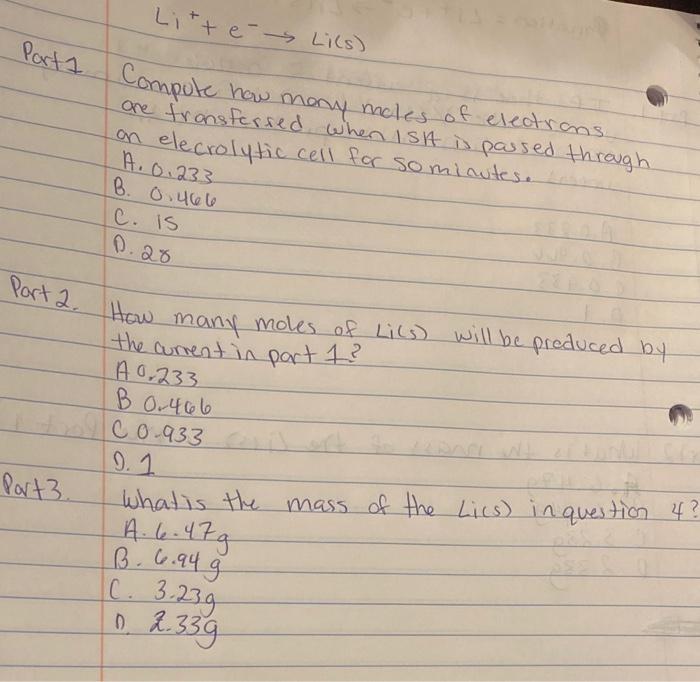 Li⁺ + e⁻ → Li(s)
Part 1 Compute how many moles of electrons
are transferred when 15A is passed through
an elecrolytic cell for 50 minutes.
A. 0.233
B. 0.466
C. 15
D. 28
Part 2. How many moles of Li(s) will be produced by
the current in part 1?
A 0.233
B 0.466
C 0.933
D. 1
Part 3. What is the mass of the Li(s) in question 4?
A. 6.47g
B. 6.94 g
C. 3.23g
D. 2.33g